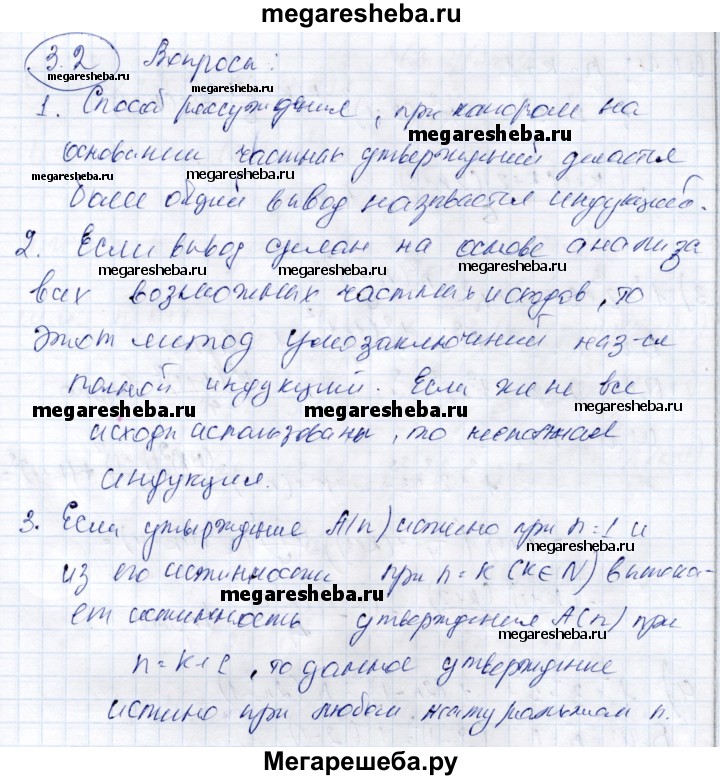 megaresheba.ru
3.2 Вопросы:
megaresheba.ru
megaresheba.ru
1. Способ рассуждения, при котором на
megaresheba.ru
основании частных утверждений делается
megaresheba.ru
более общий вывод называется индукцией.
megaresheba.ru
2. Если вывод сделан на основе анализа
megaresheba.ru
megaresheba.ru
megaresheba.ru
всех возможных частных исходов, то
этот метод умозаключений наз-ся
полной индукцией. Если же не все
megaresheba.ru
megaresheba.ru
megaresheba.ru
исходы использованы, то неполная
индукция.
3. Если утверждение A(n) истино при n=1 и
megaresheba.ru
из его истинности при n=k (k∈N) вытека-
megaresheba.ru
ет истинность утверждения A(n) при
megaresheba.ru
n=k+1, то данное утверждение
истино при любом натуральном n.
Мегарешеба.ру